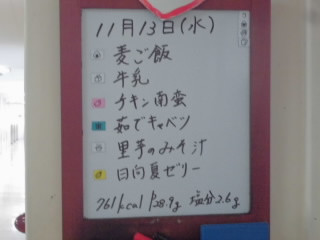 11月13日(水)
麦ご飯
牛乳
チキン南蛮
茹でキャベツ
里芋のみそ汁
日向夏ゼリー
761kcal 28.9g 塩分2.6g